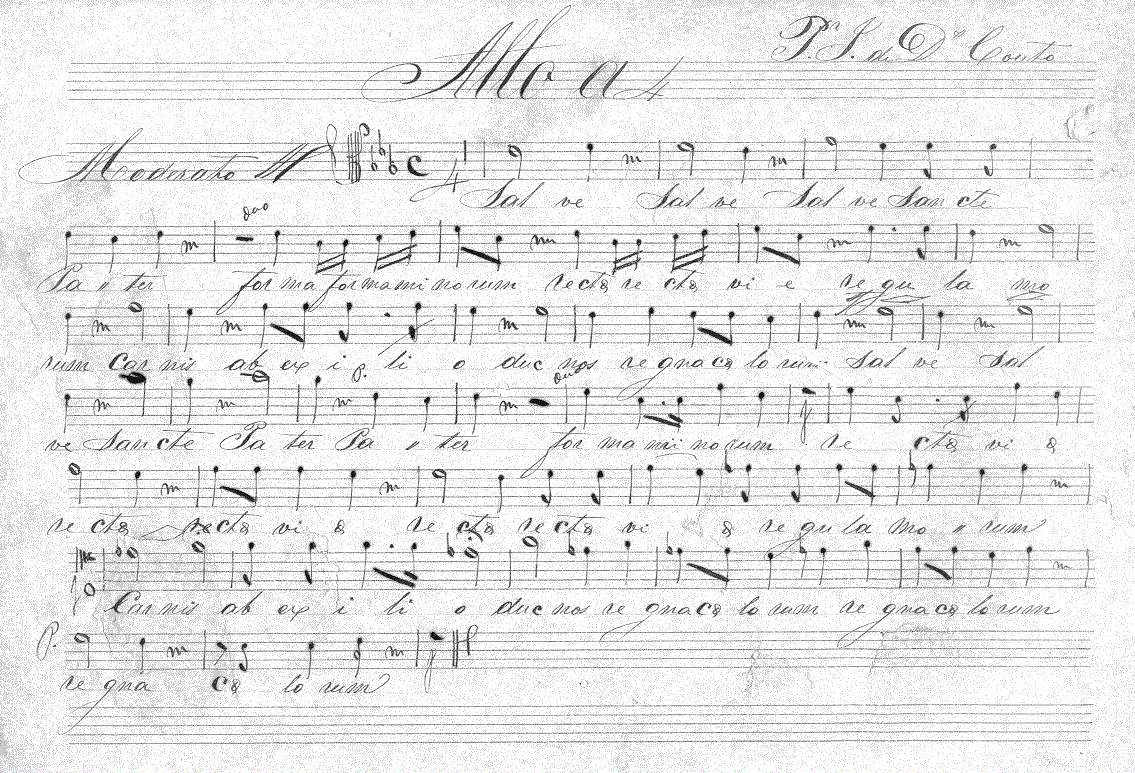 Alto a 4
Pr. J. de Ds Couto
Moderato
4
Sal ve Sal ve Sal ve San cte
duo
Pa ter for ma forma mi no rum recta re cta vi e re gu la mo
rum Car nis ab ex i li o duc nos re gna cœ lo rum Sal ve Sal
P. duo
ve San cte Pa ter Pa ter for ma mi no rum re cta vi a
re cta recta vi a re cta re cta vi a re gu la mo rum
Car nis ab ex i li o duc nos re gna cœ lo rum re gna cœ lo rum
P.
re gna cœ lo rum